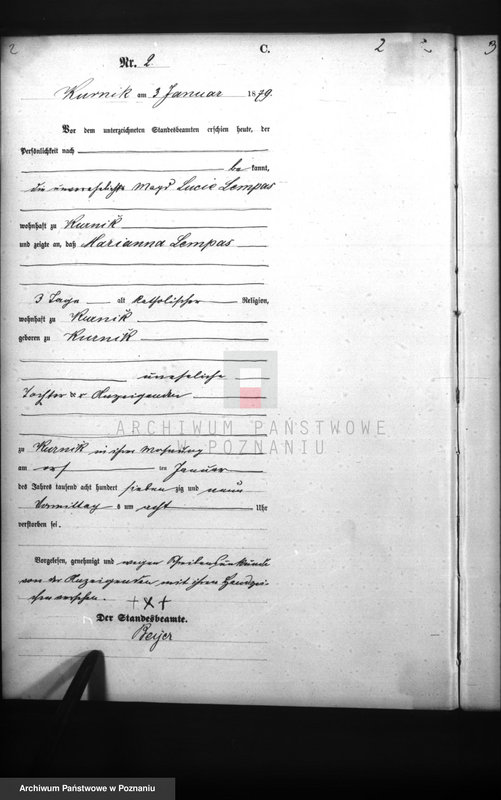 2 C. 2 3
Nr. 2
Kurnik am 3 Januar 1879.
Vor dem unterzeichneten Standesbeamten erschien heute, der
Persönlichkeit nach
be kannt,
die unverehelichte Magd Lucie Lempas
wohnhaft zu Kurnik
und zeigte an, daß Marianna Lempas
3 Tage alt katholischer Religion,
wohnhaft zu Kurnik
geboren zu Kurnik
uneheliche
Tochter der Anzeigenden
ARCHIWUM PAŃSTWOWE
W POZNANIU
zu Kurnik in ihrer Wohnung
am ten Januar
des Jahres tausend acht hundert sieben zig und neun
Vormittag s um acht Uhr
verstorben sei.
Vorgelesen, genehmigt und wegen Schreibensunkunde
von der Anzeigenden mit ihren Handzei-
chen versehen. +x+
Der Standesbeamte.
Beijer
Archiwum Państwowe w Poznaniu